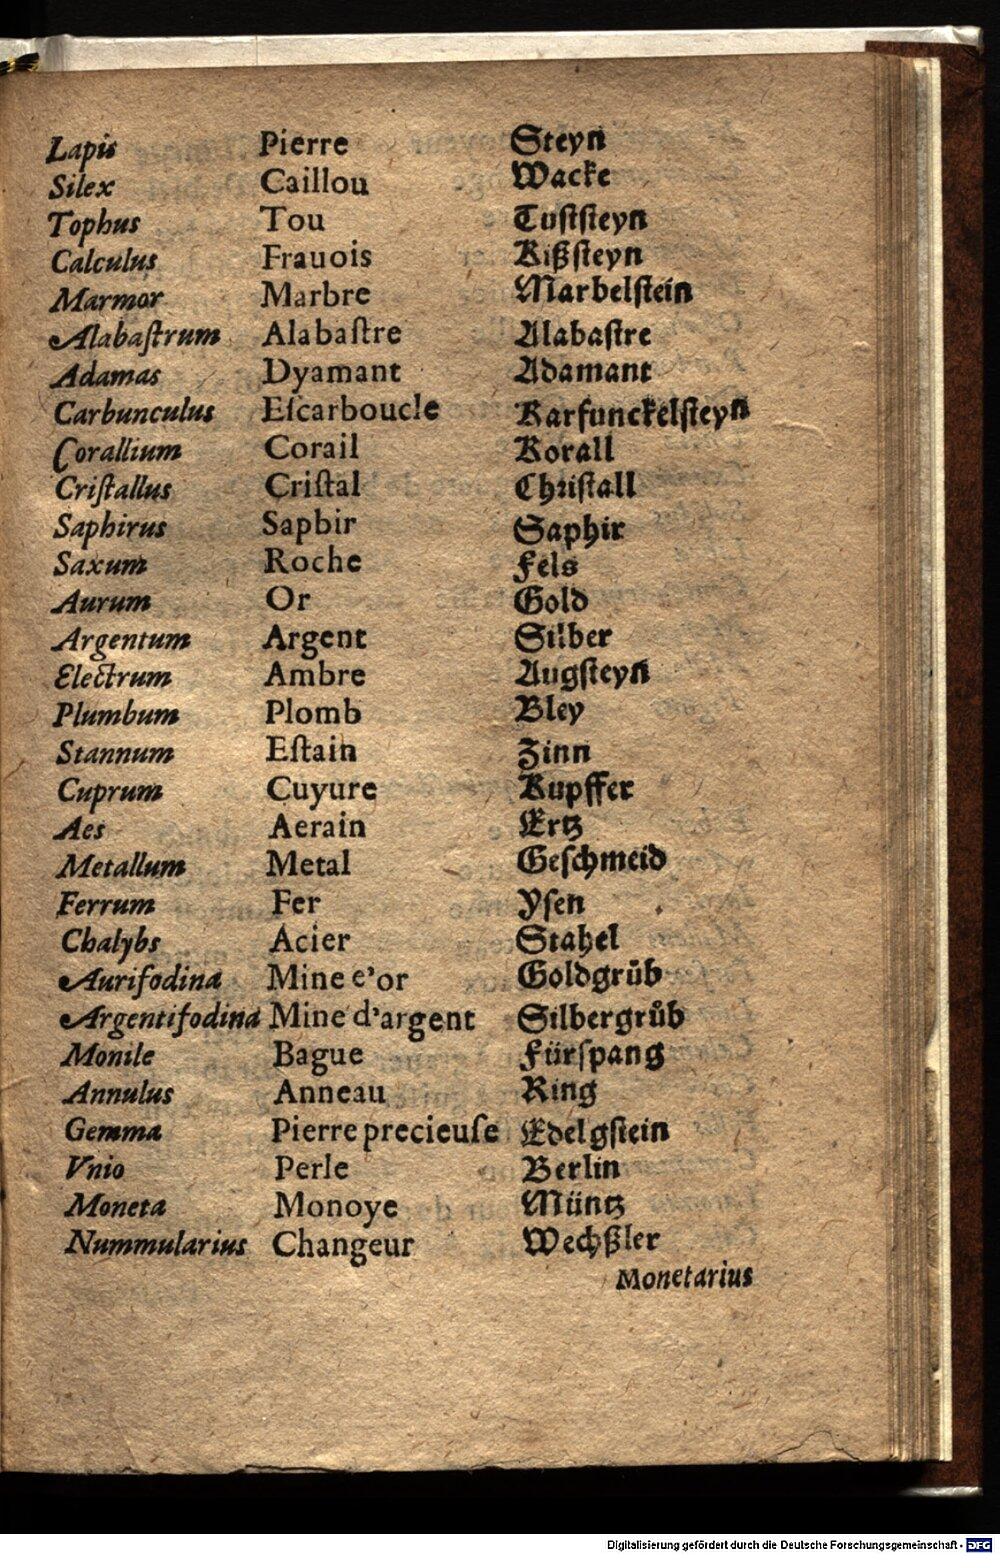 Lapis Pierre Steyn
Silex Caillou Wacke
Tophus Tou Tuſtſteyn
Calculus Frauois Kißſteyn
Marmor Marbre Marbelſtein
Alabaſtrum Alabaſtre Alabaſtre
Adamas Dyamant Adamant
Carbunculus Eſcarboucle Karfunckelſteyn
Corallium Corail Korall
Criſtallus Criſtal Chriſtall
Saphirus Sapbir Saphir
Saxum Roche Fels
Aurum Or Gold
Argentum Argent Silber
Electrum Ambre Augſteyn
Plumbum Plomb Bley
Stannum Eſtain Zinn
Cuprum Cuyure Kupffer
Aes Aerain Ertz
Metallum Metal Geſchmeid
Ferrum Fer Yſen
Chalybs Acier Stahel
Aurifodina Mine e'or Goldgrůb
Argentifodina Mine d'argent Silbergrůb
Monile Bague Fürſpang
Annulus Anneau Ring
Gemma Pierre precieuſe Edelgſtein
Vnio Perle Berlin
Moneta Monoye Müntz
Nummularius Changeur Wechßler
Monetarius
Digitalisierung gefördert durch die Deutsche Forschungsgemeinschaft - DFG